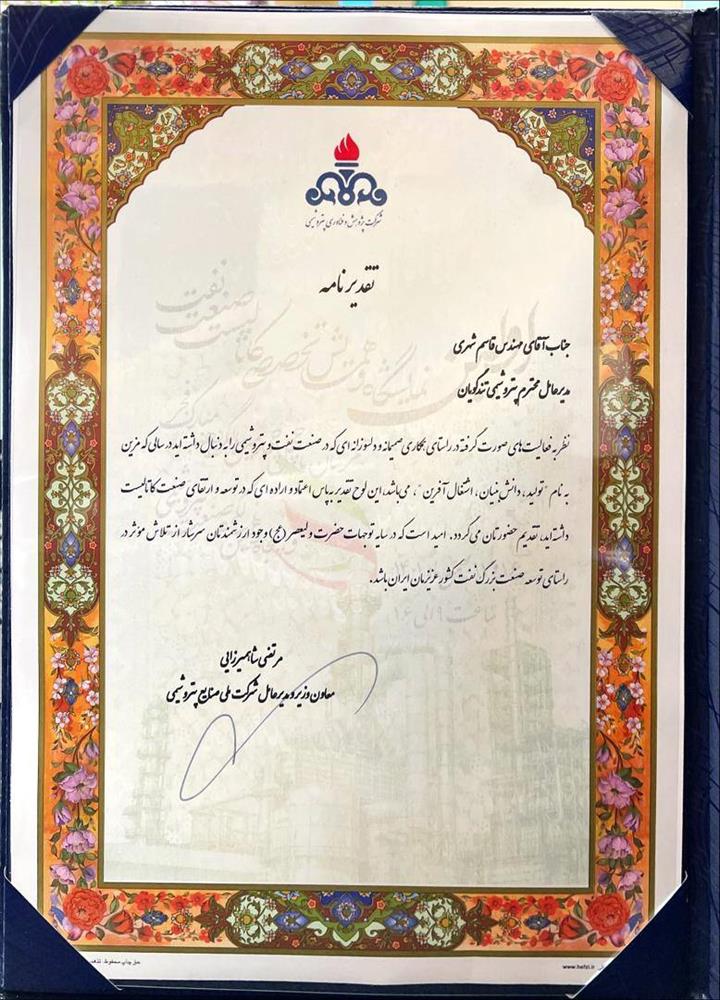 شرکت پژوهش و فناوری پتروشیمی
تقدیرنامه
جناب آقای مهندس قاسم شهری
مدیرعامل محترم پتروشیمی تندگویان
نظر به فعالیت‌های صورت گرفته در راستای همکاری صمیمانه و دلسوزانه ای که در صنعت نفت و پتروشیمی را به دنبال داشته اید در سالی که مزین
به نام "تولید، دانش بنیان، اشتغال آفرین"، می‌باشد، این لوح تقدیر به پاس اعتماد و اراده ای که در توسعه و ارتقای صنعت کاتالیست
داشته‌اید، تقدیم حضورتان می‌گردد. امید است که در سایه توجهات حضرت ولیعصر (عج) وجود ارزشمندتان سرشار از تلاش مؤثر در
راستای توسعه صنعت بزرگ نفت کشور عزیزمان ایران باشد.
ساعت ۹ الی ۱۶
مرتضی شاهمیرزایی
معاون وزیر و مدیرعامل شرکت ملی صنایع پتروشیمی
حق چاپ محفوظ
www.hefzi.ir